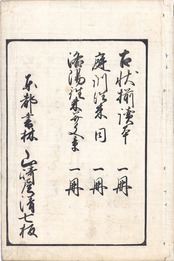 古状揃讀本 一冊
庭訓往来 同 一冊
洛陽往来 一冊
東都書林 山崎屋清七板